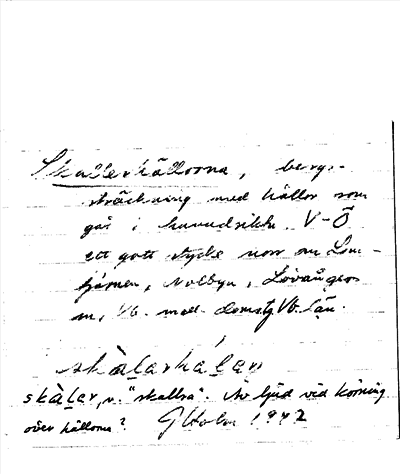 Skallerhällorna, bergs-
sträckning med hällor som
går i huvudriktn. V-Ö
ett gott stycke norr om Lom-
tjärnen, Nolbyn, Lövångers
sn, Vb. 
skàl̲arhäl̲er
skàl̲er, v. "skallra". Av ljud vid körning
över hällorna? 1942